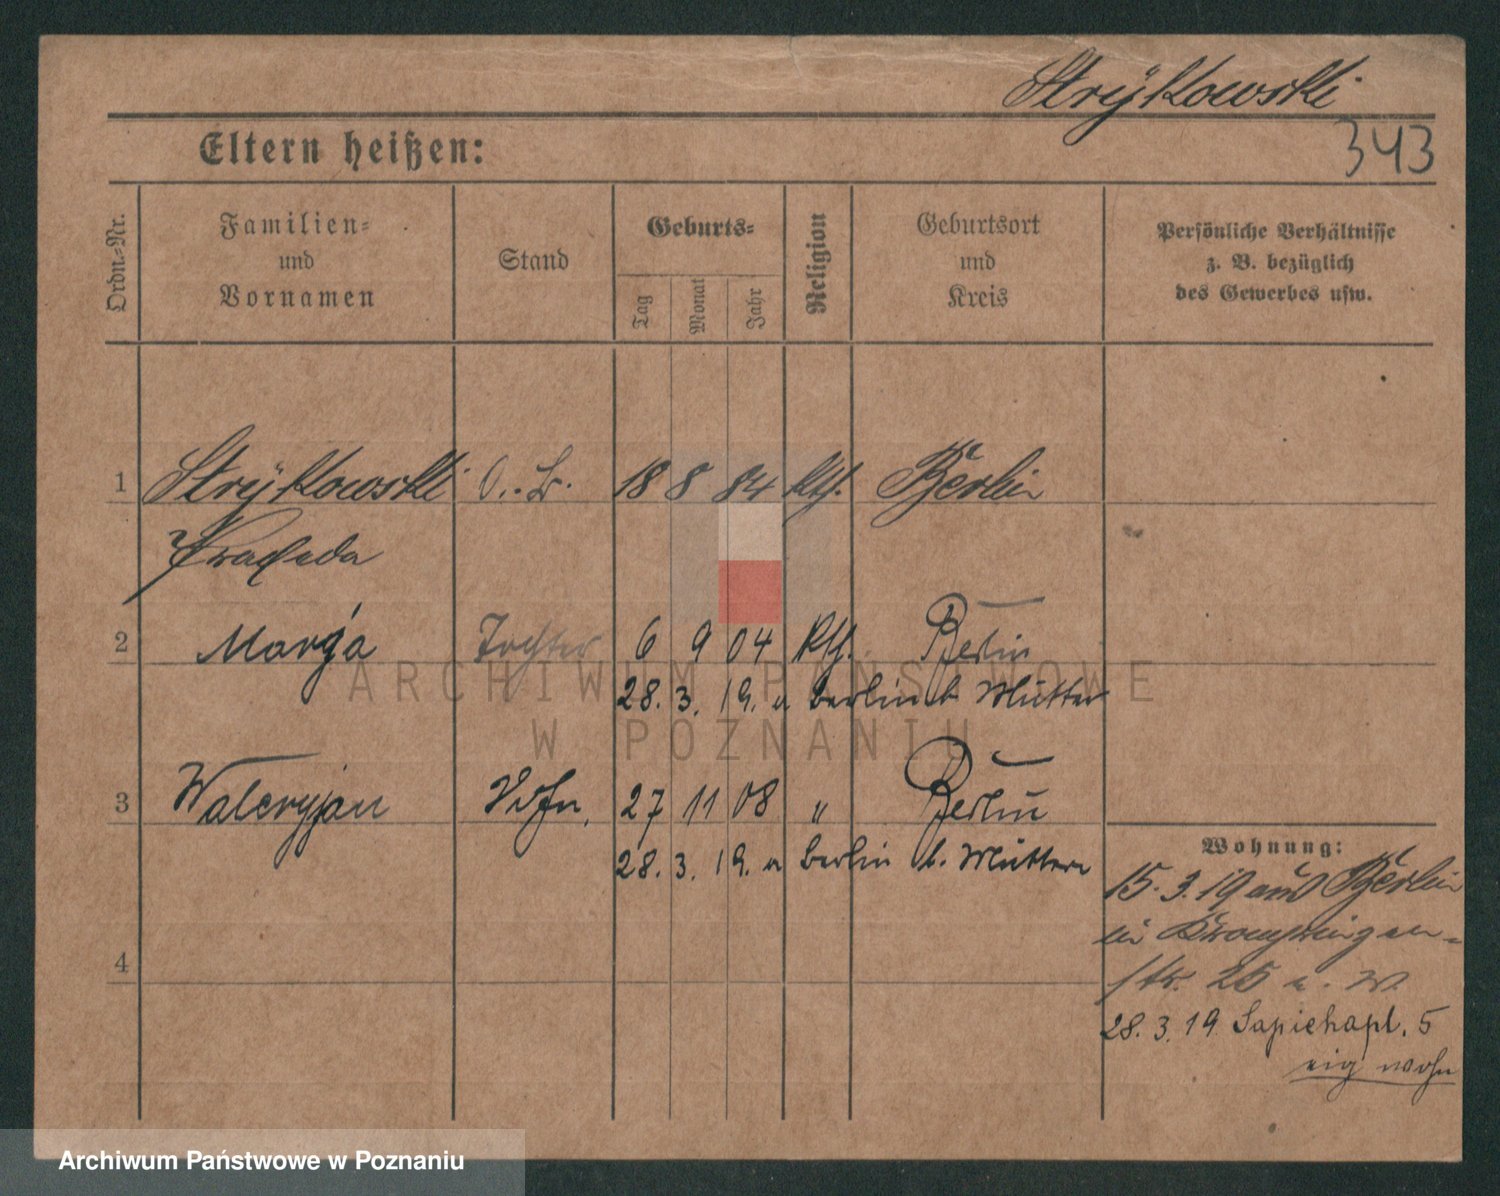 Strÿkowski
343
Eltern heißen:
Ordn.-Nr.
Familien-
und
Vornamen
Stand
Geburts-
Tag
Monat
Jahr
Religion
Geburtsort
und
Kreis
Persönliche Verhältnisse
z. B. bezüglich
des Gewerbes usw.
1 Strÿkowski 18 8 84 Kth. Berlin
2 Marja Tochter 6 9 04 Kth. Berlin
28. 3. 19. n Berlin b. Mutter
3 Waleryjan Sohn, 27 11 08 " Berlin
28. 3. 19. n Berlin b. Mutter
4
Wohnung:
15. 3. 19 aus Berlin
in Kronprinzen-
str. 25 a. W.
28. 3. 19 Sapiehapl. 5
eig wohn
ARCHIWUM PAŃSTWOWE
W POZNANIU
Archiwum Państwowe w Poznaniu